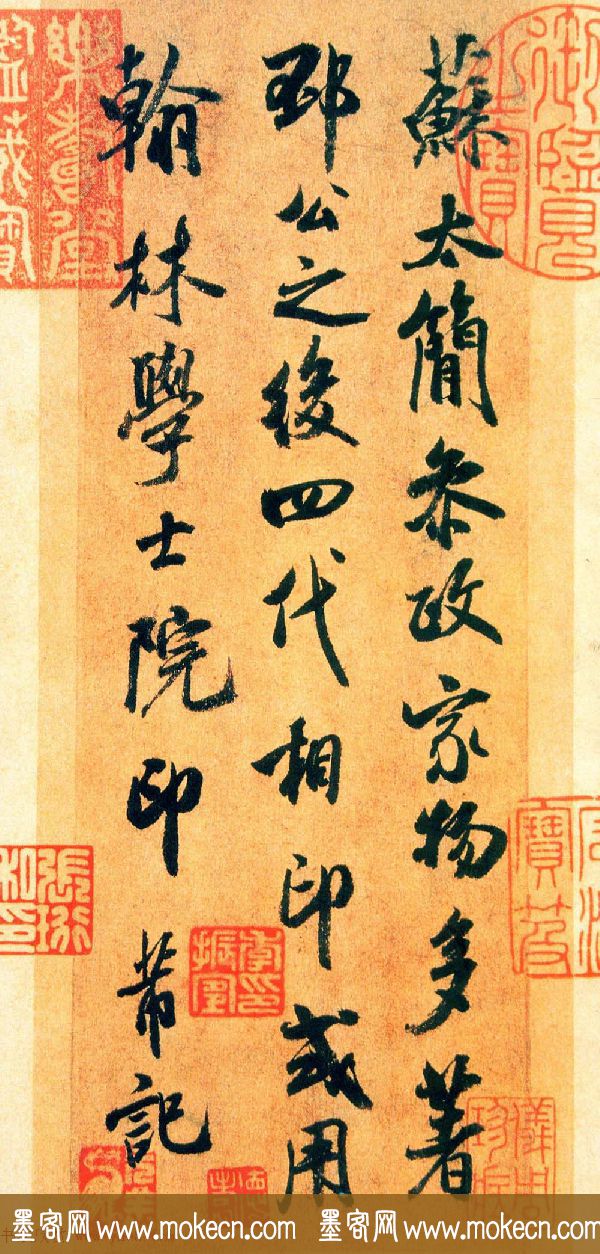 蘇太簡叅政家物多著
邳公之後四代相印或用
翰林學士院印 芾記
御覽
寶
樂善堂
張珩
墨客网 www.mokecn.com 墨客网 www.mokecn.com